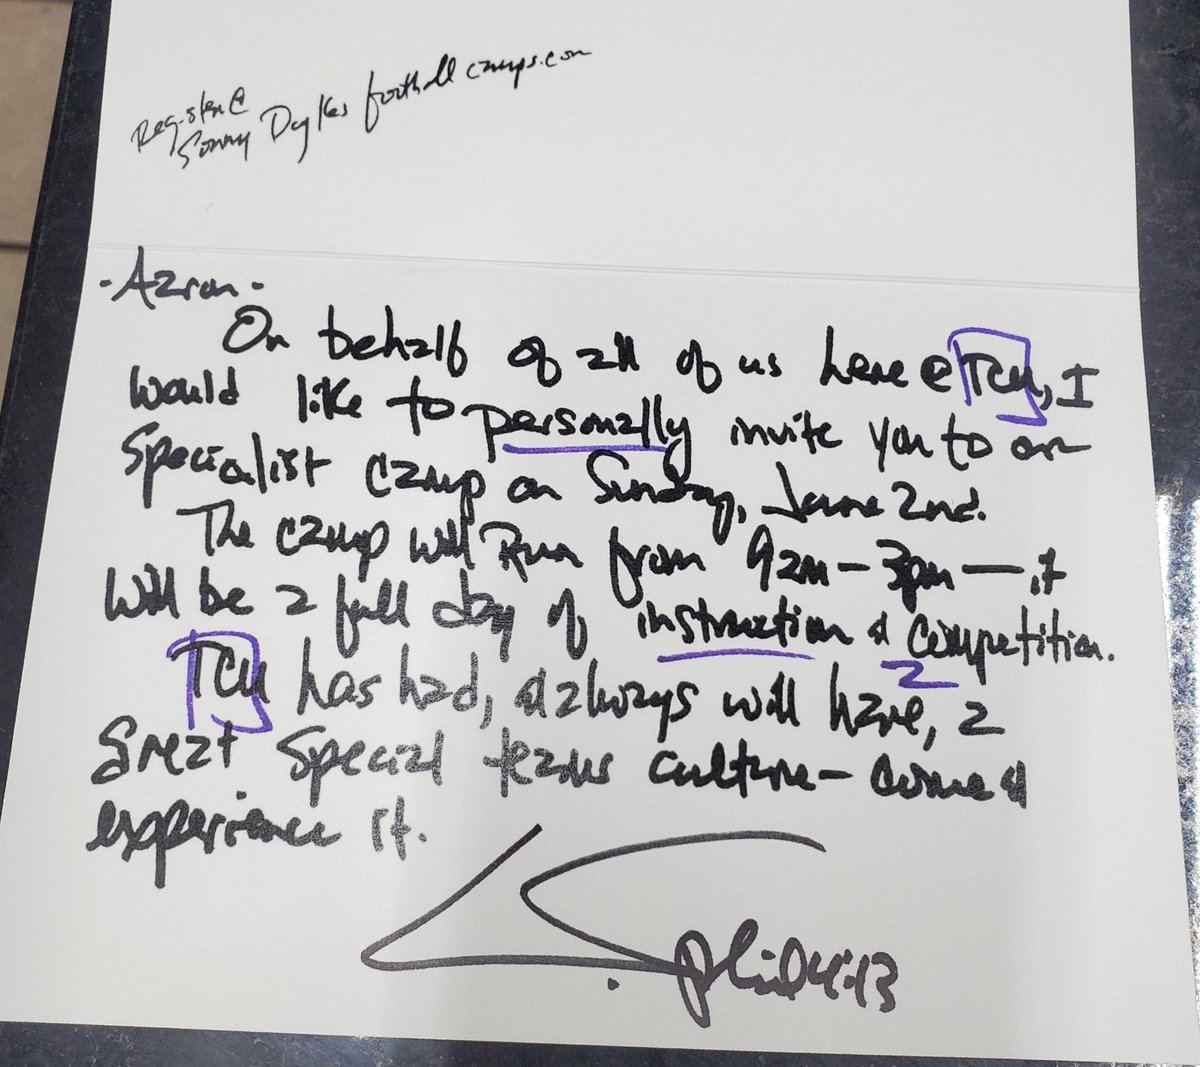 Register @
Sonny Dykes football camps.com
- Aaron -
On behalf of all of us here @ TCU, I
would like to personally invite you to our
Specialist camp on Sunday, June 2nd.
The camp will Run from 9am - 3pm — it
will be a full day of instruction & competition.
TCU has had, & always will have, a
Great Special teams culture - come &
experience it.
Phil 4:13